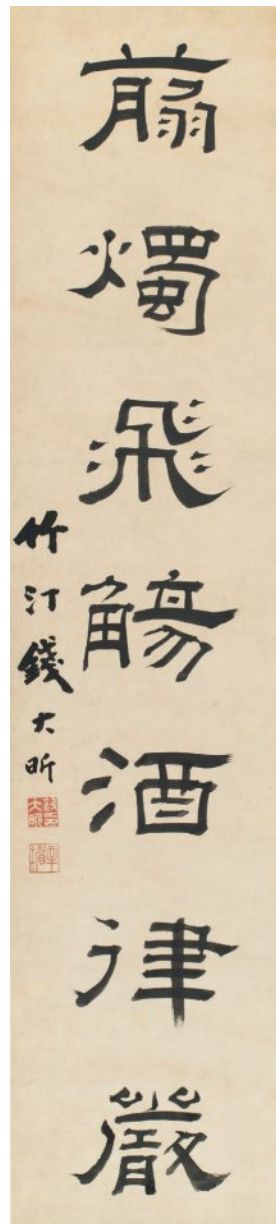 翦燭飛觴酒律嚴
竹汀錢大昕